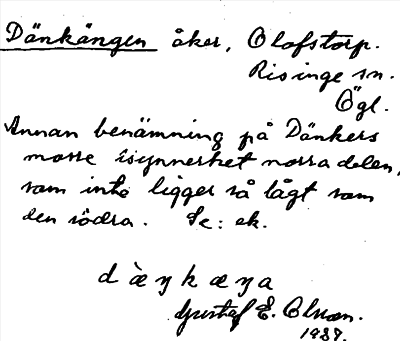 Dänkängen åker, Olofstorp.
Risinge sn.
Ögl.
Annan benämning på Dänkers
mosse isynnerhet norra delen,
som inte ligger så lågt som
den södra. Se: ek.
dæ̀ŋkæŋa
Gustaf E. Olsson.
1937.